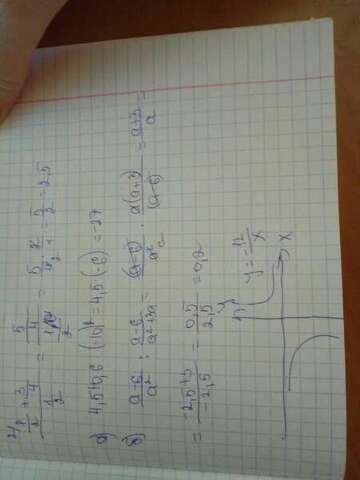 (1/2 + 3/4) / (1/2) = (5/4) / (1/2) = 5/4 · 2/1 = 5/2 = 2,5
а) 4,5+0,6 (-10)² = 4,5 (-6) = -27
б) (a-6)/a² : (a-6)/(a²+3a) = (a-6)/a² · a(a+3)/(a-6) = (a+3)/a =
= (-2,5+3)/(-2,5) = 0,5/2,5 = 0,2
y
y = -12/x
x